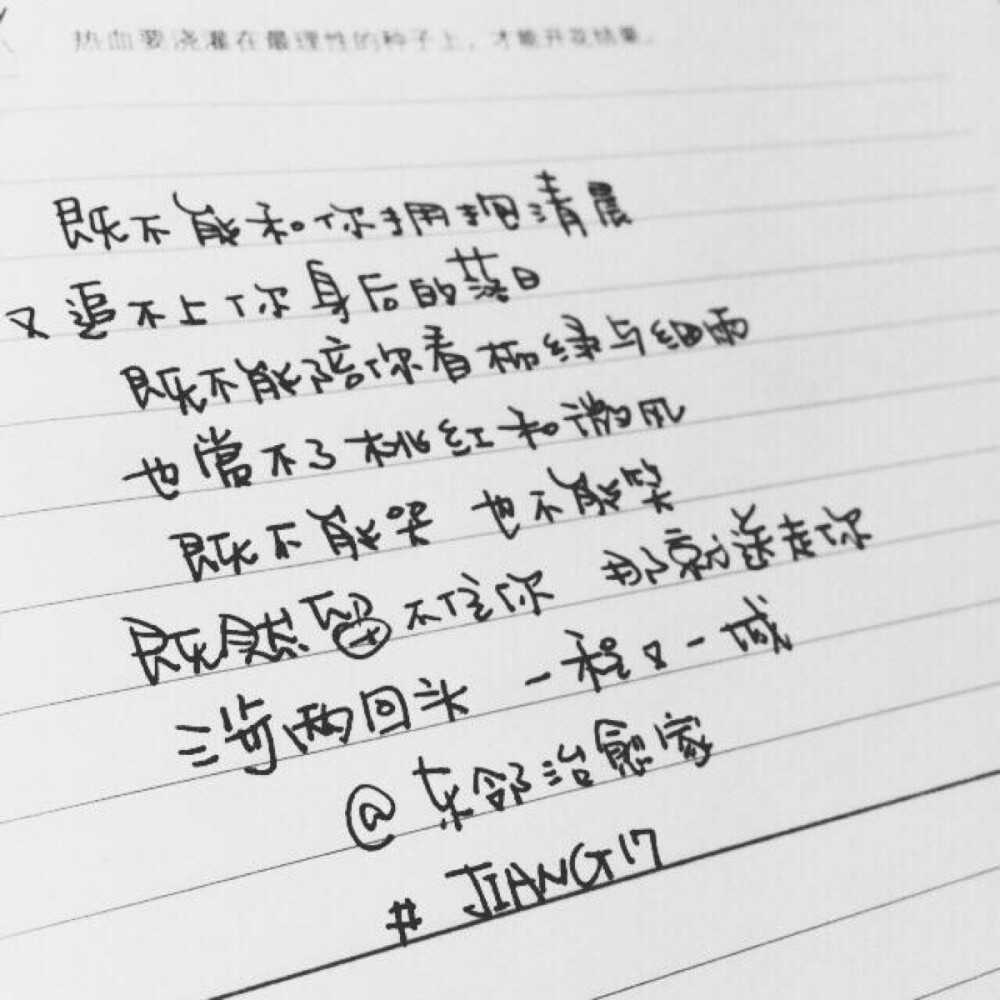 热血要浇灌在最理性的种子上，才能开花结果。
既不能和你拥抱清晨
又追不上你身后的落日
既不能陪你看柳绿与细雨
也当不了桃红和微风
既不能哭 也不能笑
既然留不住你 那就送走你
三步两回头 一程又一城
@东邻治愈家
# JIANG17